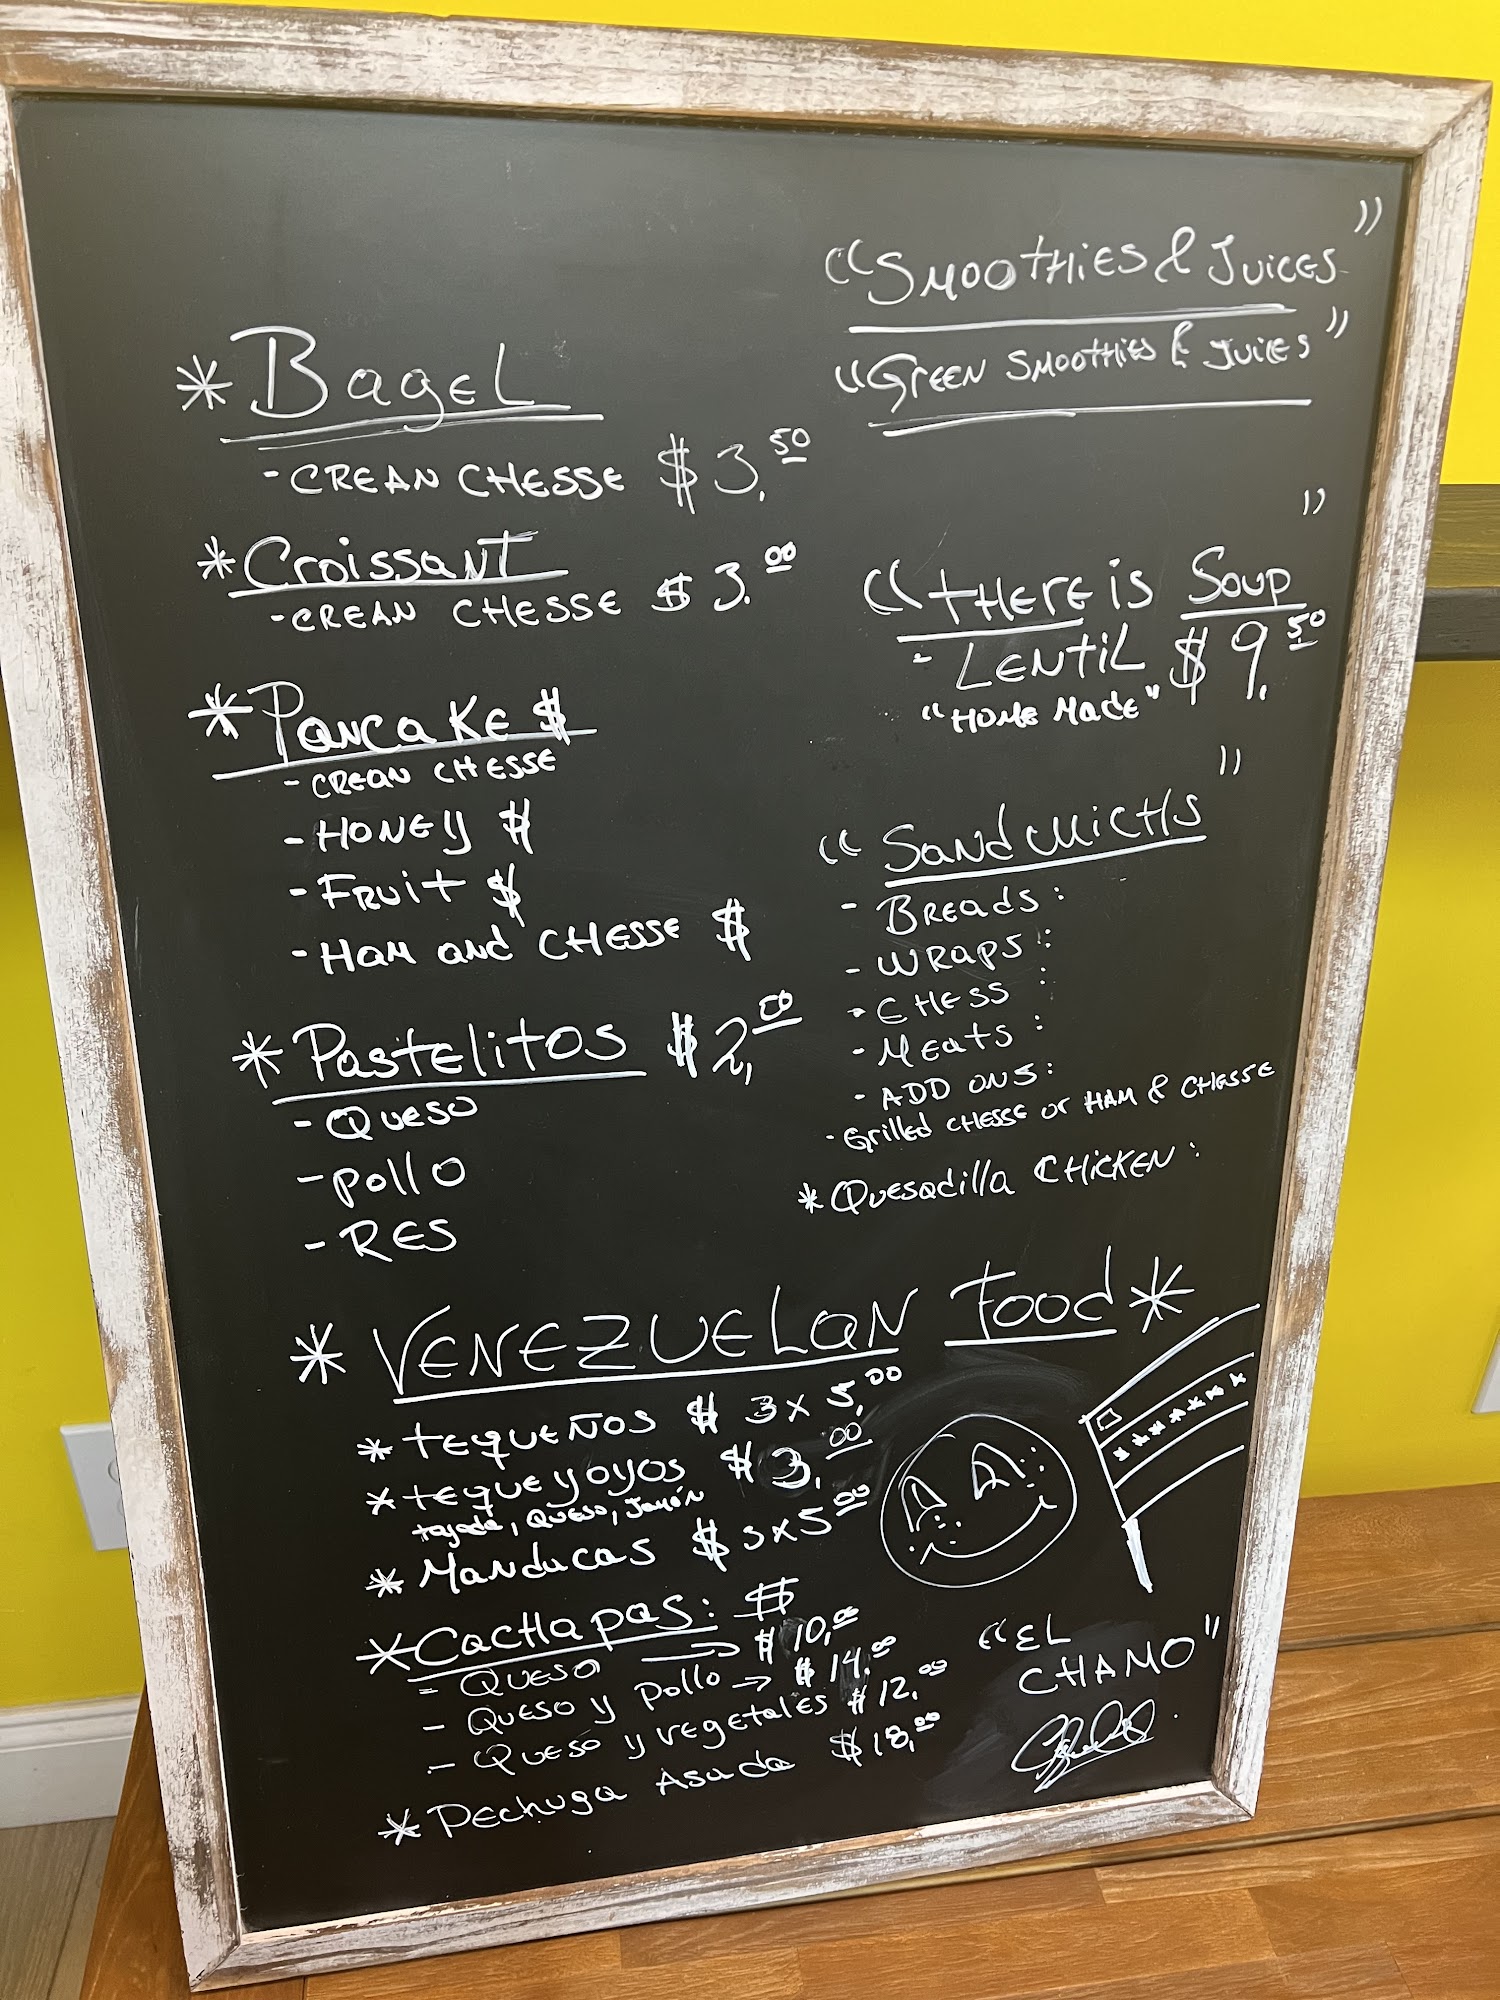 * Bagel
- CREAN CHESSE $3.50
* Croissant
- CREAN CHESSE $3.00
* Pancake $
- CREAN CHESSE
- HONEY $
- FRUit $
- HAM and CHESSE $
* Pastelitos $2,00
- Queso
- pollo
- RES
"SMOOTHiES & JUiCES"
"GREEN SMOOTHIES & JUICES"
"tHERE iS Soup"
- LENtiL $9.50
"HOME MADE"
"SANDWICHS"
- BREADS:
- WRAPS:
- CHESS:
- MEATS:
- ADD ONS:
- Grilled CHESSE or HAM & CHESSE
* Quesadilla CHICKEN:
* VENEZUELAN Food *
* tEQUEÑOS $ 3x5,00
* tEQUEYOYOS $3,00
tajada, QUESO, Jamón
* MANDUCAS $3x5.00
* CACHAPAS: $
- QUESO → $10,00
- QUESO y pollo → $14.00
- QUESO y vegetales $12,00
* Pechuga Asada $18,00
"EL
CHAMO"